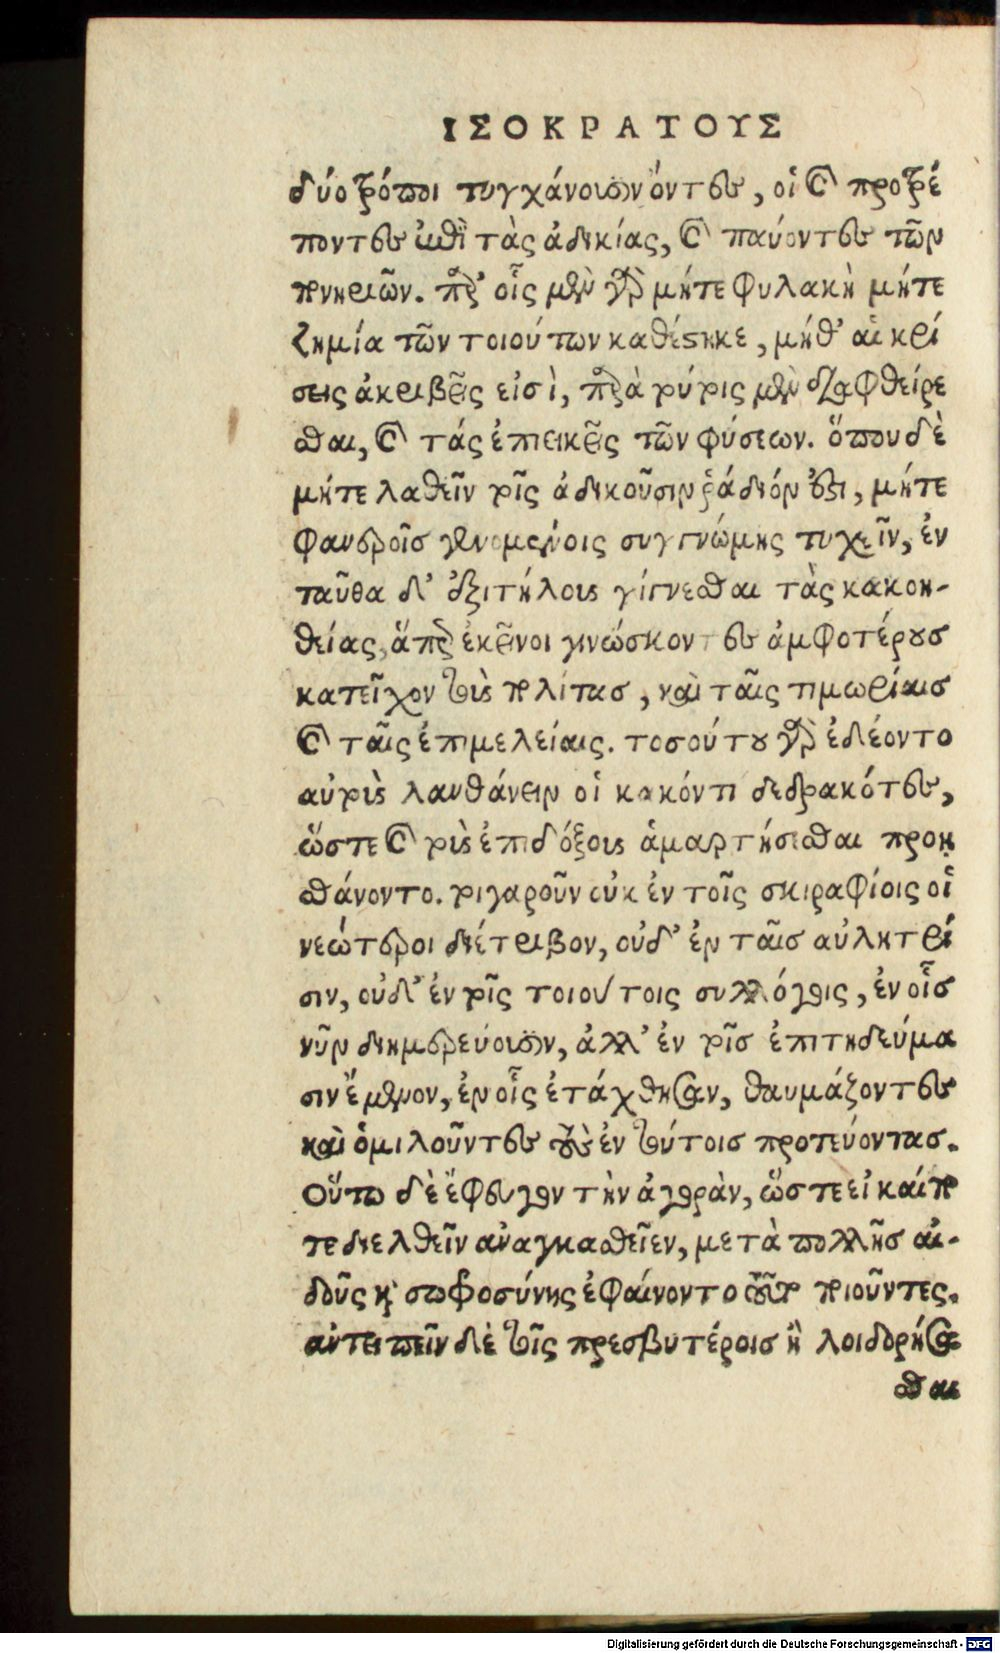 ΙΣΟΚΡΑΤΟΥΣ
δύο τρόποι τυγχάνουσιν ὄντες, οἱ καὶ προτρέ
ποντες ἐπὶ τὰς ἀδικίας, καὶ παύοντες τῶν
πονηριῶν. παρ' οἷς μὲν γὰρ μήτε φυλακὴ μήτε
ζημία τῶν τοιούτων καθέστηκε, μήθ' αἱ κρί
σεις ἀκριβεῖς εἰσὶ, παρὰ τύτοις μὲν διαφθείρε
σθαι, καὶ τάς ἐπιεικεῖς τῶν φύσεων. ὅπου δὲ
μήτε λαθεῖν τοῖς ἀδικοῦσιν ῥάδιόν ἐστι, μήτε
φανεροῖς γενομένοις συγγνώμης τυχεῖν, ἐν
ταῦθα δ' ἐξιτήλους γίγνεσθαι τὰς κακοη-
θείας, ἅπερ ἐκεῖνοι γινώσκοντες ἀμφοτέρους
κατεῖχον τοὺς πολίτας, καὶ ταῖς τιμωρίαις
καὶ ταῖς ἐπιμελείαις. τοσούτου γὰρ ἐδέοντο
αὐτοὺς λανθάνειν οἱ κακόν τι δεδρακότες,
ὥστε καὶ τοὺς ἐπιδόξους ἁμαρτήσεσθαι προῃ
σθάνοντο. τοιγαροῦν οὐκ ἐν τοῖς σκιραφίοις οἱ
νεώτεροι διέτριβον, οὐδ' ἐν ταῖς αὐλητρί
σιν, οὐδ' ἐν τοῖς τοιούτοις συλλόγοις, ἐν οἷς
νῦν διημερεύουσιν, ἀλλ' ἐν τοῖς ἐπιτηδεύμα
σιν ἔμενον, ἐν οἷς ἐτάχθησαν, θαυμάζοντες
καὶ ὁμιλοῦντες τοὺς ἐν τούτοις προτεύοντας.
Οὕτω δὲ ἔφευγον τὴν ἀγορὰν, ὥστε εἰ καί πο
τε διελθεῖν ἀναγκασθεῖεν, μετὰ πολλῆς αἰ-
δοῦς καὶ σωφροσύνης ἐφαίνοντο τοῦτο ποιοῦντες.
ἀντειπεῖν δὲ τοῖς πρεσβυτέροις ἢ λοιδορήσα
σθαι
Digitalisierung gefördert durch die Deutsche Forschungsgemeinschaft - DFG